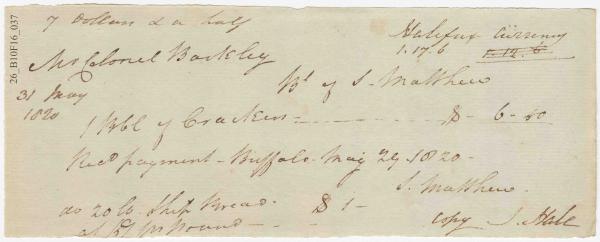 7 Dollars & a half
Halifax Currency
1.17.6
Mr Colonel Barkley
Bt of S. Matthew
31 May
1820
1 Bbl of Crackers - - - $ - 6 - 50
Recd payment - Buffalo May 29 1820 -
S. Matthew
as 20 lb Ship Bread - $ 1 -
copy J. Hale
26_B10F16_037